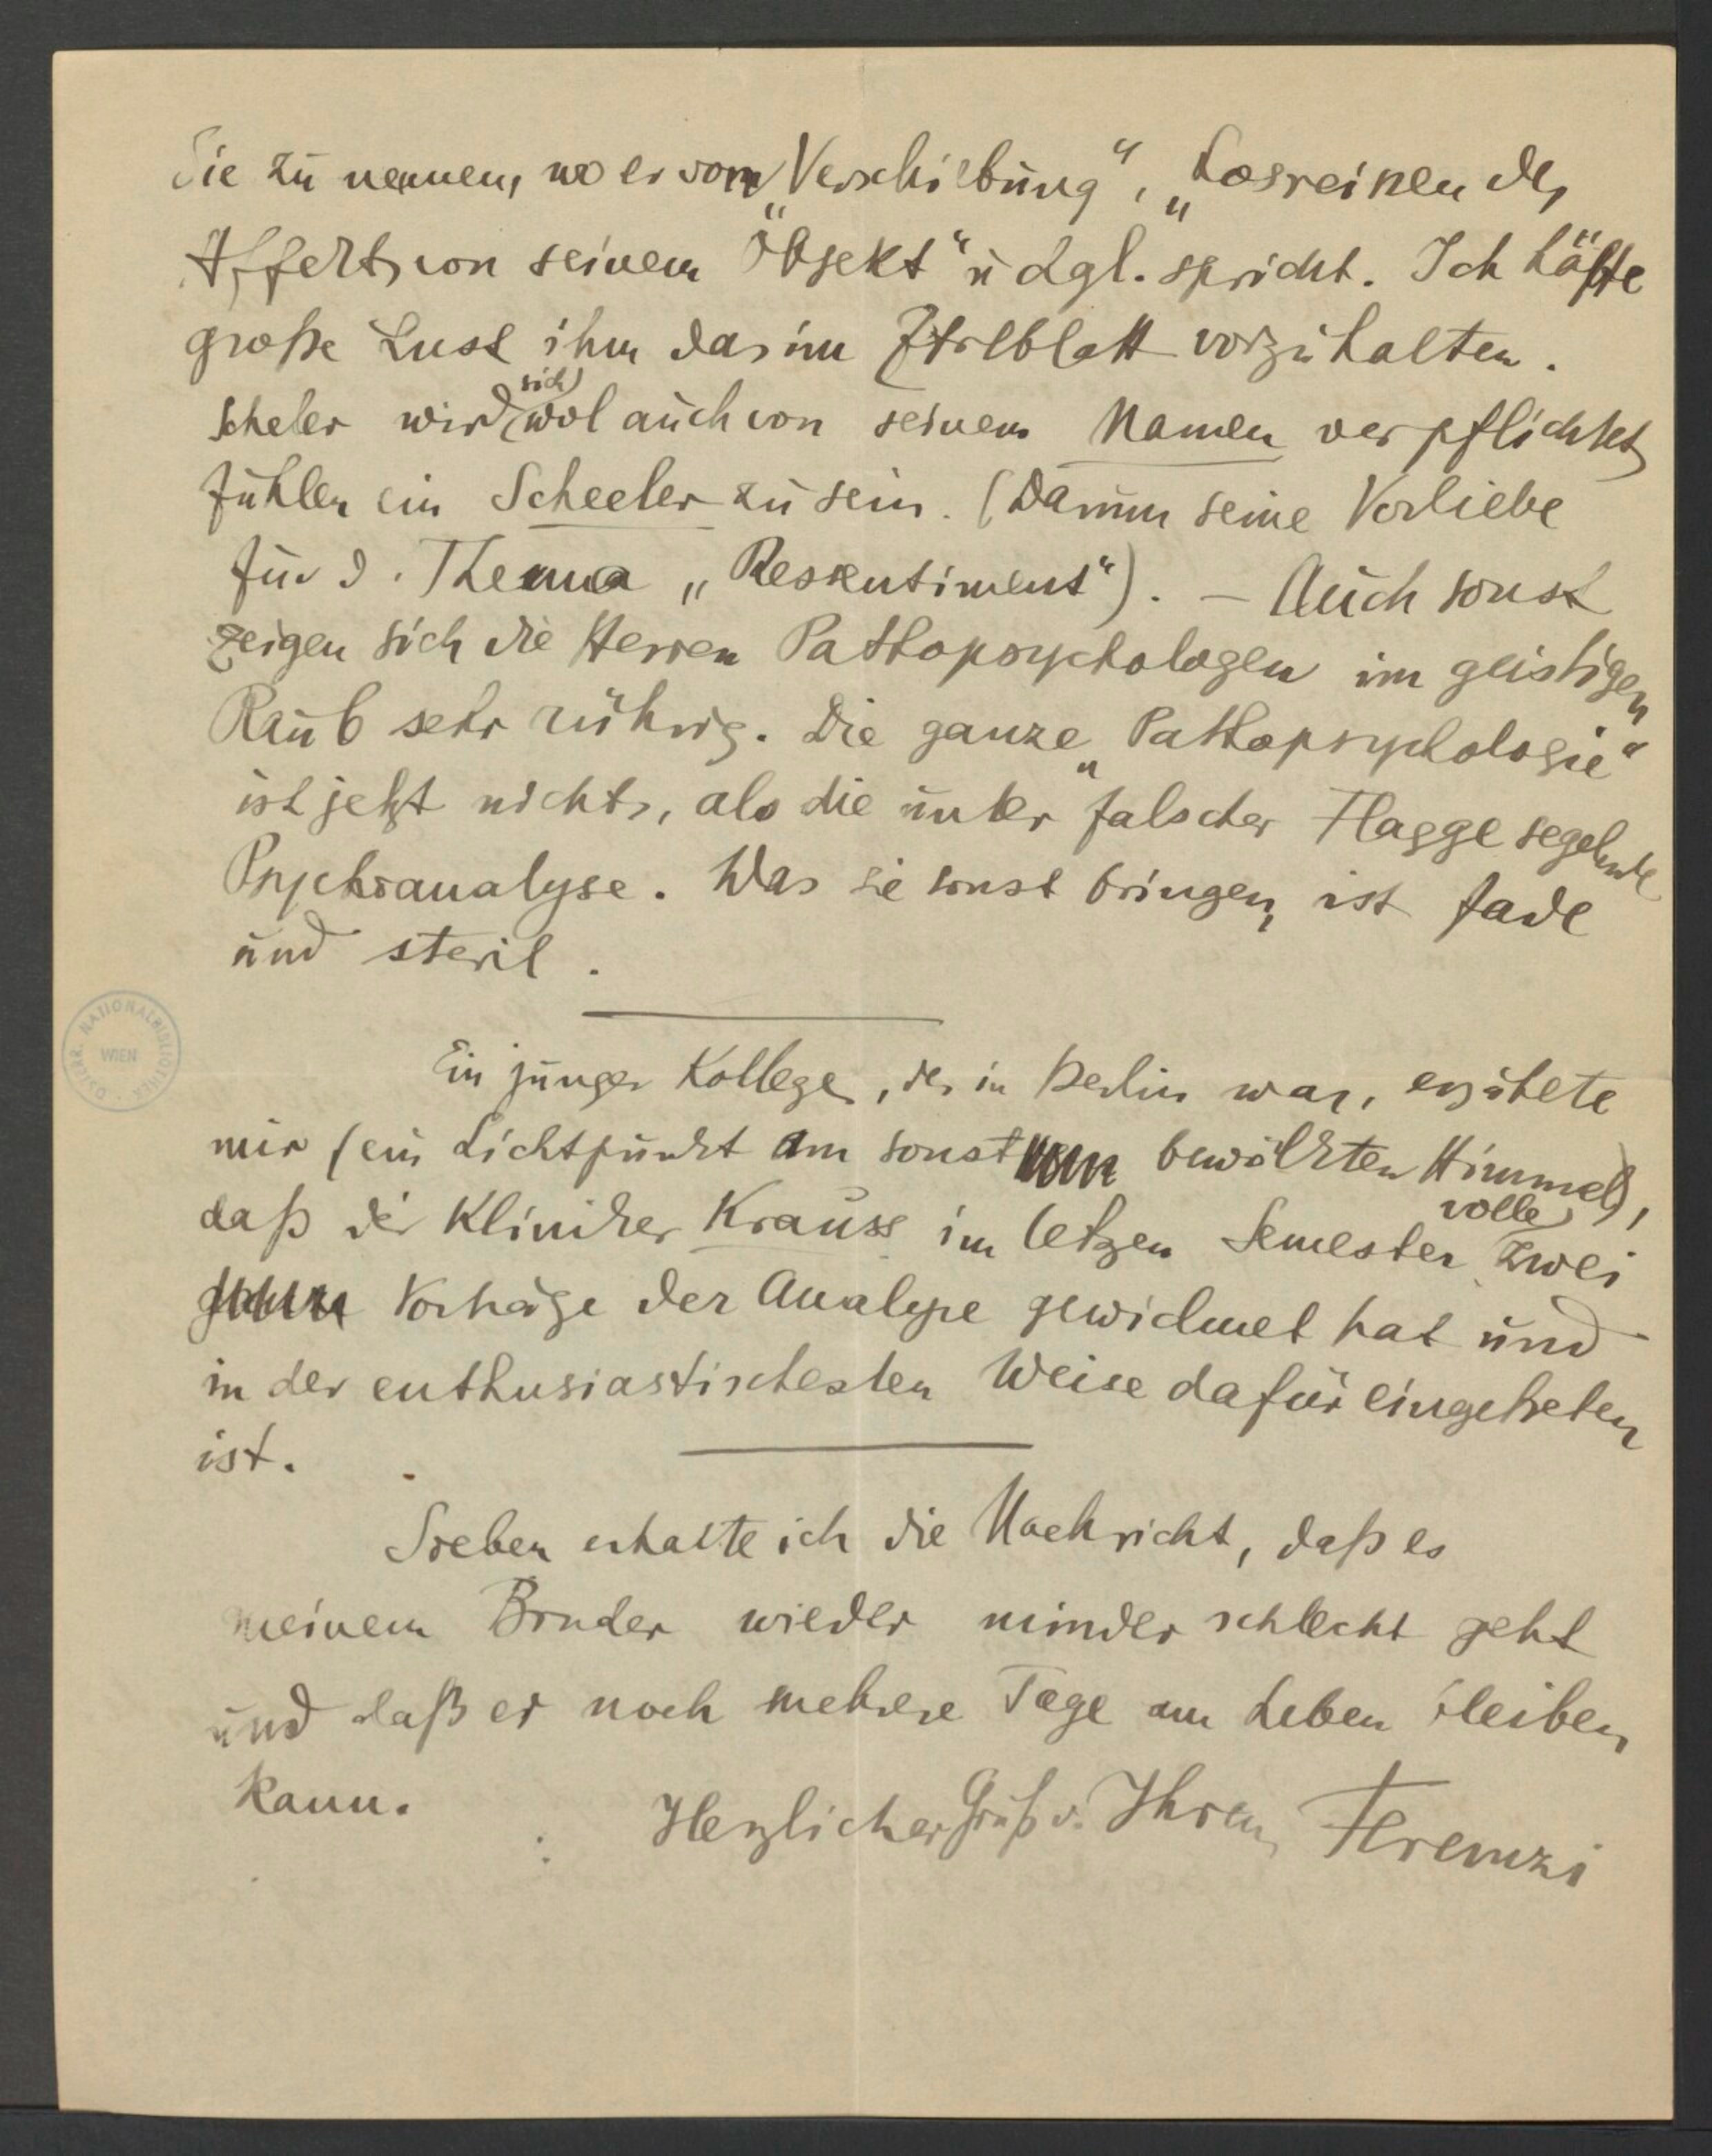 Sie zu nennen, wo er vom „Verschiebung“, „Losreissen des
Affekts von seinem Objekt“ u dgl. spricht. Ich hätte
große Lust ihm das im Ztrlblatt vorzuhalten.
Scheler wird sich wol auch von seinem Namen verpflichtet
fühlen ein Scheeler zu sein. (Darum seine Vorliebe
für d. Thema „Ressentiment“). – Auch sonst
zeigen sich die Herren Pathopsychologen im geistigen
Raub sehr rührig. Die ganze „Pathopsychologie“
ist jetzt nichts, als die unter falscher Flagge segelnde
Psychoanalyse. Was sie sonst bringen, ist fade
und steril.
ÖSTERR. NATIONALBIBLIOTHEK WIEN
Ein junger Kollege, der in Berlin war, erzählte
mir (ein Lichtpunkt am sonst bewölkten Himmel),
daß der Kliniker Krauss im letzen Semester volle zwei
Vorträge der Analyse gewidmet hat und
in der enthusiastischesten Weise dafür eingetreten
ist.
Soeben erhalte ich die Nachricht, daß es
meinem Bruder wieder minder schlecht geht
und daß er noch mehrere Tage am Leben bleiben
kann.
Herzlichen Gruß v. Ihrem Ferenczi